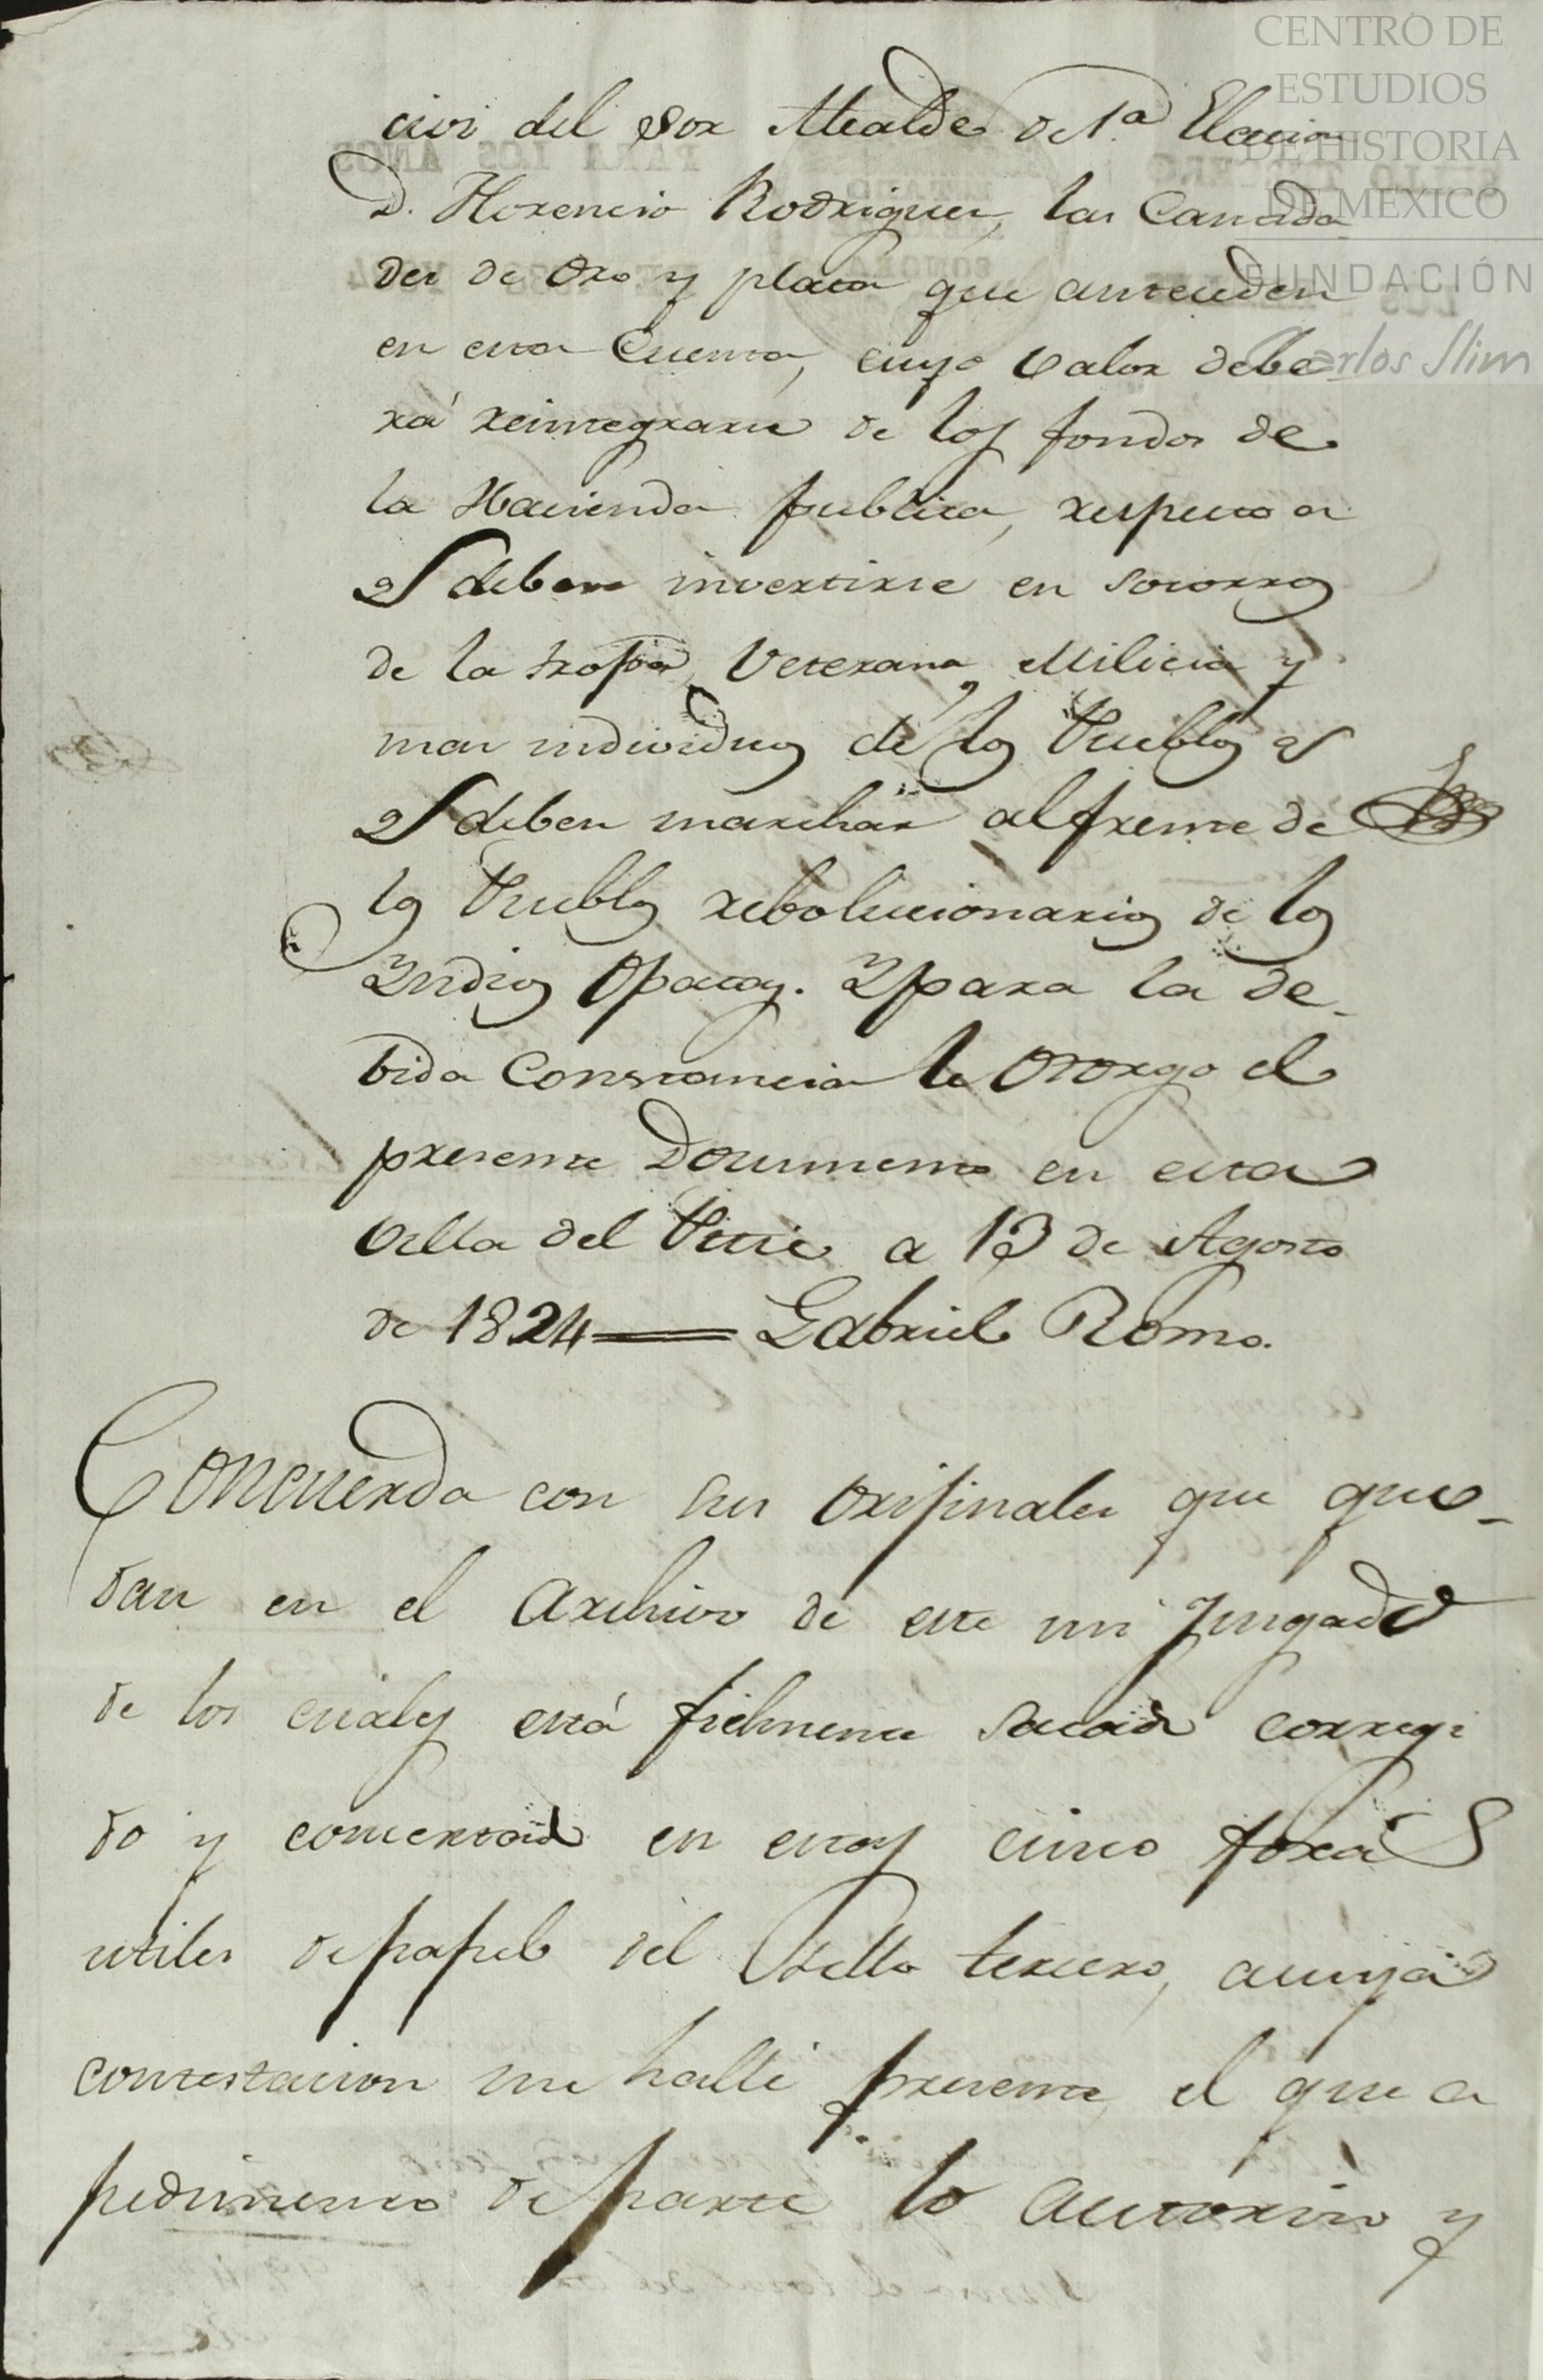 CENTRO DE
ESTUDIOS
DE HISTORIA
DE MEXICO
FUNDACIÓN
Carlos Slim
civi del Sor Alcalde de 1.a Elecion
D. Florencio Rodriguez, las Cantida
des de Oro y plata que
en esta Cuenta, cuyo valor debe
rá reintegrarse de los fondos de
la Hacienda publica, respecto a
q.e deben invertirse en socorros
de la tropa Veterana, Milicia y
mas individuos de los Pueblos
q.e deben marchar al frente de
los Pueblos rebolucionarios de los
Yndios Opatas. Y para la de-
bida Constancia le Otorgo el
presente Documento en esta
Villa del Pitic a 13 de Agosto
de 1824 == Gabriel Romo.
Concuerda con sus Originales que que-
dan en el Archivo de este mi Juzgado
de los cuales está fielmente sacado corregi
do y concertado en estas cinco foxas
utiles de papel del Sello tercero, a cuya
contestacion me hallé presente, el que a
pedimento de parte lo autorizo y